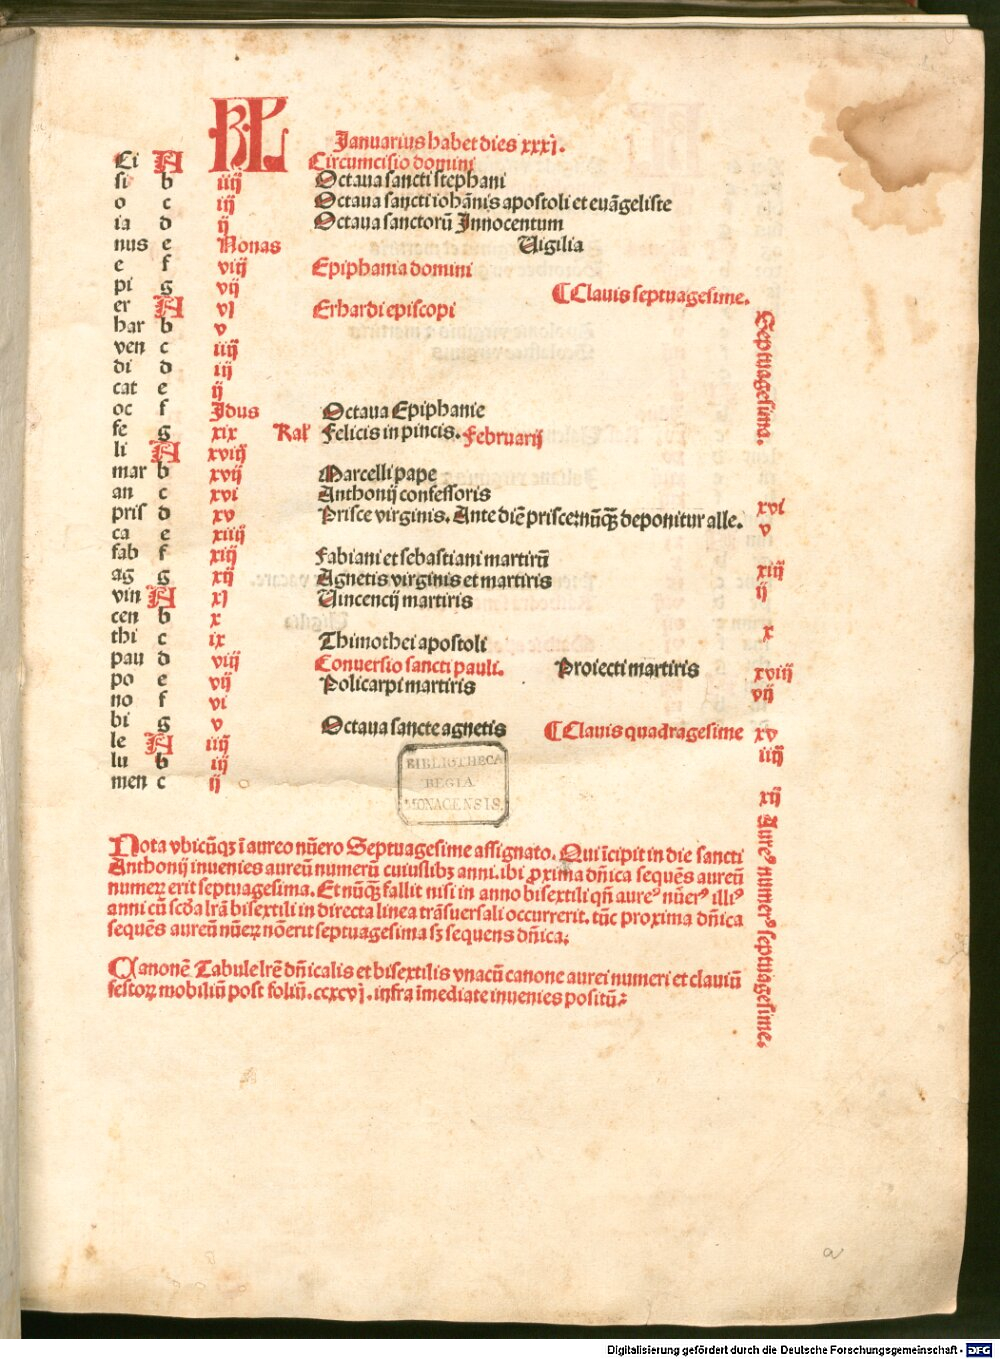 KL Januarius habet dies xxxj.
Ci A Circumcisio domini
si b iiij Octaua sancti stephani
o c iij Octaua sancti iohānis apostoli et euāgeliste
ia d ij Octaua sanctorū Innocentum
nus e Nonas Uigilia
e f viij Epiphania domini
pi g vij ¶Clauis septuagesime.
er A vj Erhardi episcopi
bar b v
ven c iiij
di d iij
cat e ij
oc f Jdus Octaua Epiphanie
fe g xix Kal Felicis in pincis. Februarij
li A xviij
mar b xvij Marcelli pape
an c xvi Anthonij confessoris xvi
pris d xv Prisce virginis. Ante diē prisce: nūqȝ deponitur alle. v
ca e xiiij
fab f xiij Fabiani et sebastiani martirū xiij
ag g xij Agnetis virginis et martiris ij
vin A xj Uincencij martiris
cen b x x
thi c ix Thimothei apostoli
pau d viij Conuersio sancti pauli. Proiecti martiris xviij
po e vij Policarpi martiris vij
no f vi
bi g v Octaua sancte agnetis ¶Clauis quadragesime xv
le A iiij iiij
lu b iij
men c ij xij
Septuagesima.
Aureꝰ numerꝰ septuagesime.
BIBLIOTHECA
REGIA
MONACENSIS.
Nota vbicūqȝ ī aureo nūero Septuagesime assignato. Qui īcipit in die sancti
Anthonij inuenies aureū numerū cuiuslibȝ anni. ibi ꝓxima dn̄ica sequēs aureū
numeꝝ erit septuagesima. Et nūqȝ fallit nisi in anno bisextili qn̄ aureꝰ nūerꝰ illiꝰ
anni cū scd̄a lrā bisextili in directa linea trāsuersali occurrerit. tūc proxima dn̄ica
sequēs aureū nūeꝝ nōerit septuagesima sȝ sequens dn̄ica.
Canonē Tabule lrē dn̄icalis et bisextilis vnacū canone aurei numeri et clauiū
festoꝝ mobiliū post foliū. ccxcvj. infra īmediate inuenies positū.
a
Digitalisierung gefördert durch die Deutsche Forschungsgemeinschaft - DFG